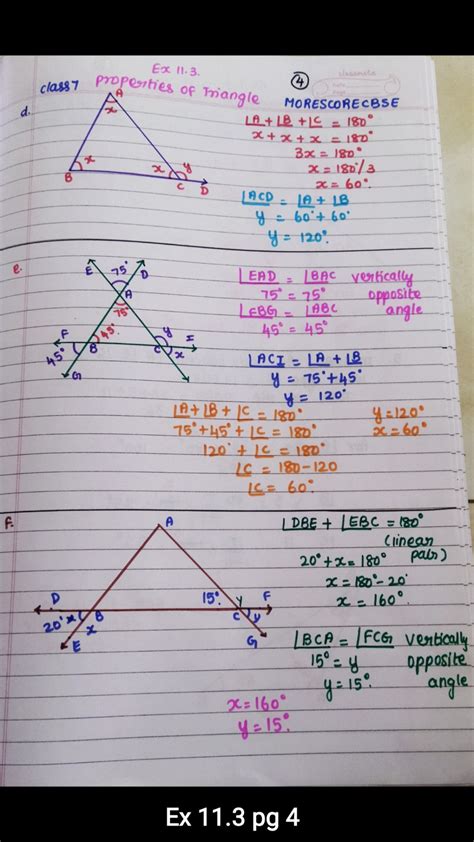 Ex 11.3.
class 7 properties of Triangle
④
classmate
MORESCORECBSE
d.
A
x
B
x
x
y
C
D
∠A + ∠B + ∠C = 180°
x + x + x = 180°
3x = 180°
x = 180°/3
x = 60°.
∠ACD = ∠A + ∠B
y = 60° + 60°
y = 120°.
e.
E
75°
D
A
75°
F
45°
B
45°
G
y
C
x
I
∠EAD = ∠BAC vertically
75° = 75° opposite
∠EBG = ∠ABC angle
45° = 45°
∠ACI = ∠A + ∠B
y = 75° + 45°
y = 120°
∠A + ∠B + ∠C = 180°
75° + 45° + ∠C = 180°
120° + ∠C = 180°
∠C = 180 - 120
∠C = 60°.
y = 120°
x = 60°
f.
A
D
20°
x
B
x
E
15°
y
C
y
F
G
∠DBE + ∠EBC = 180°
(linear
pair)
20° + x = 180°
x = 180° - 20°
x = 160°.
∠BCA = ∠FCG vertically
15° = y opposite
y = 15°. angle
x = 160°
y = 15°.
Ex 11.3 pg 4